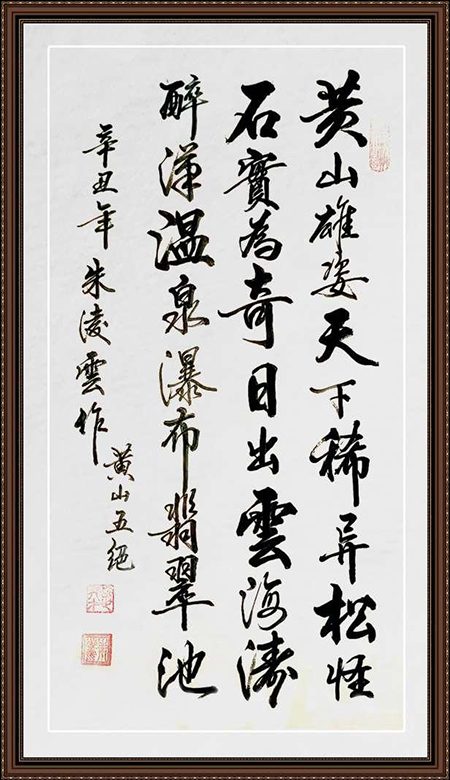 黄山雄姿天下稀异松怪
石實為奇日出雲海濤
醉漢温泉瀑布翡翠池
辛丑年朱凌雲作
黄山五绝